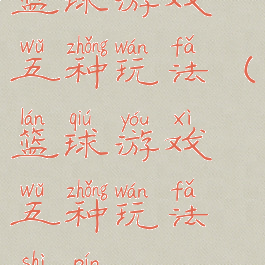 篮球游戏
wǔ zhǒng wán fǎ
五种玩法（
lán qiú yóu xì
篮球游戏
wǔ zhǒng wán fǎ
五种玩法
shì pín